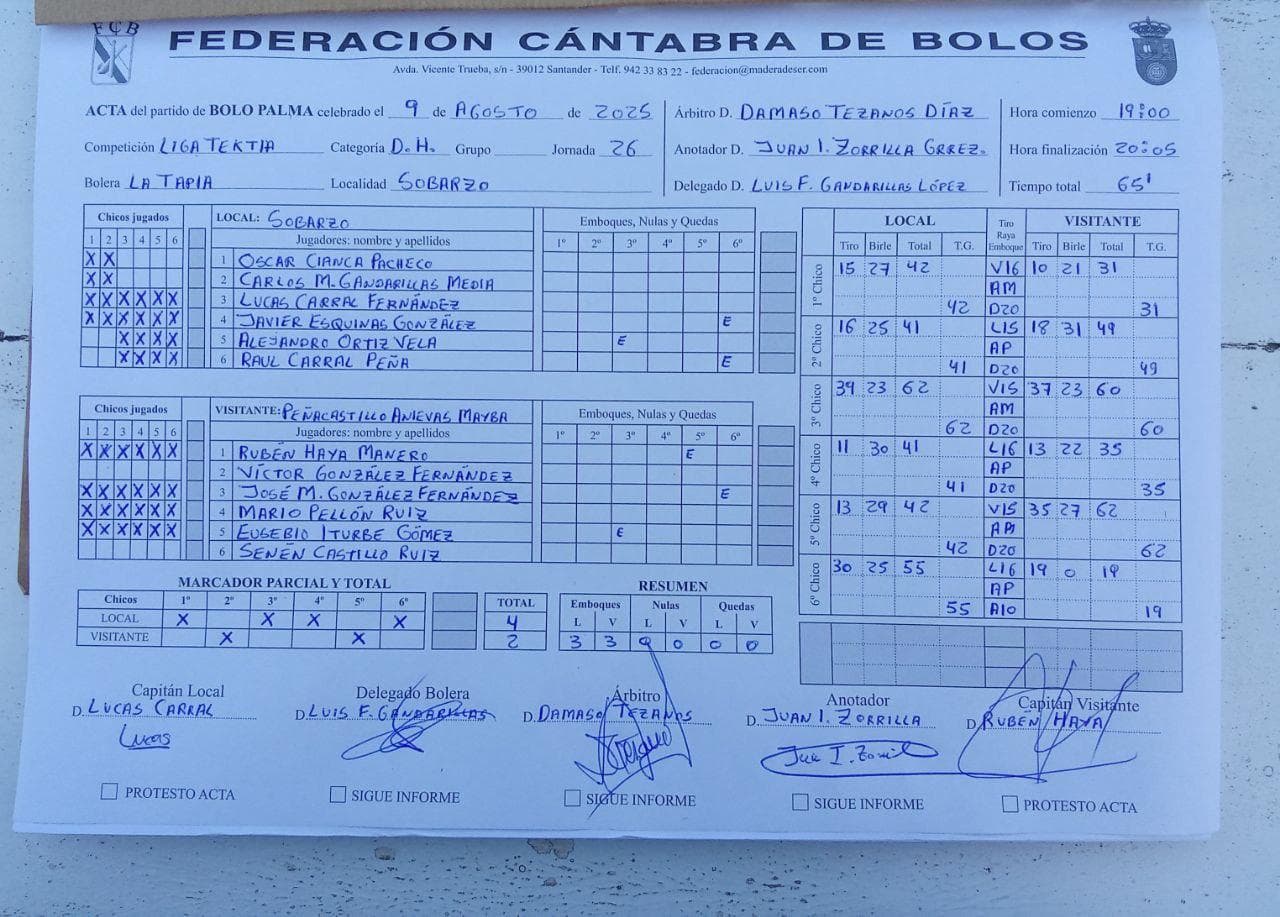 FCB
FEDERACIÓN CÁNTABRA DE BOLOS
Avda. Vicente Trueba, s/n - 39012 Santander - Telf. 942 33 83 22 - federacion@maderadeser.com
ACTA del partido de BOLO PALMA celebrado el 9 de AGOSTO de 2025 Árbitro D. DAMASO TEZANOS DÍAZ Hora comienzo 19:00
Competición LIGA TEKTIA Categoría D.H. Grupo Jornada 26 Anotador D. JUAN I. ZORRILLA GRREZ. Hora finalización 20:05
Bolera LA TAPIA Localidad SOBARZO Delegado D. LUIS F. GANDARILLAS LÓPEZ Tiempo total 65'
Chicos jugados LOCAL: SOBARZO Emboques, Nulas y Quedas
1 2 3 4 5 6 Jugadores: nombre y apellidos 1º 2º 3º 4º 5º 6º
X X 1 OSCAR CIANCA PACHECO
X X 2 CARLOS M. GANDARILLAS MEDIA
X X X X X X 3 LUCAS CARRAL FERNÁNDEZ
X X X X X X 4 JAVIER ESQUINAS GONZÁLEZ E
X X X X 5 ALEJANDRO ORTIZ VELA E
X X X X 6 RAUL CARRAL PEÑA E
Chicos jugados VISITANTE: PEÑACASTILLO ANIEVAS MAYBA Emboques, Nulas y Quedas
1 2 3 4 5 6 Jugadores: nombre y apellidos 1º 2º 3º 4º 5º 6º
X X X X X X 1 RUBÉN HAYA MANERO E
2 VÍCTOR GONZÁLEZ FERNÁNDEZ
X X X X X X 3 JOSÉ M. GONZÁLEZ FERNÁNDEZ E
X X X X X X 4 MARIO PELLÓN RUIZ
X X X X X X 5 EUSEBIO ITURBE GÓMEZ E
6 SENÉN CASTILLO RUIZ
LOCAL Tiro Raya Emboque VISITANTE
Tiro Birle Total T.G. Tiro Birle Total T.G.
1º Chico 15 27 42 V16 10 21 31
AM
42 D20 31
2º Chico 16 25 41 L15 18 31 49
AP
41 D20 49
3º Chico 39 23 62 V15 37 23 60
AM
62 D20 60
4º Chico 11 30 41 L16 13 22 35
AP
41 D20 35
5º Chico 13 29 42 V15 35 27 62
AM
42 D20 62
6º Chico 30 25 55 L16 19 0 19
AP
55 A10 19
MARCADOR PARCIAL Y TOTAL
Chicos 1º 2º 3º 4º 5º 6º TOTAL
LOCAL X X X X 4
VISITANTE X X 2
RESUMEN
Emboques Nulas Quedas
L V L V L V
3 3 0 0 0 0
Capitán Local Delegado Bolera Árbitro Anotador Capitán Visitante
D. LUCAS CARRAL D. LUIS F. GANDARILLAS D. DAMASO TEZANOS D. JUAN I. ZORRILLA D. RUBÉN HAYA
Lucas
PROTESTO ACTA SIGUE INFORME SIGUE INFORME SIGUE INFORME PROTESTO ACTA